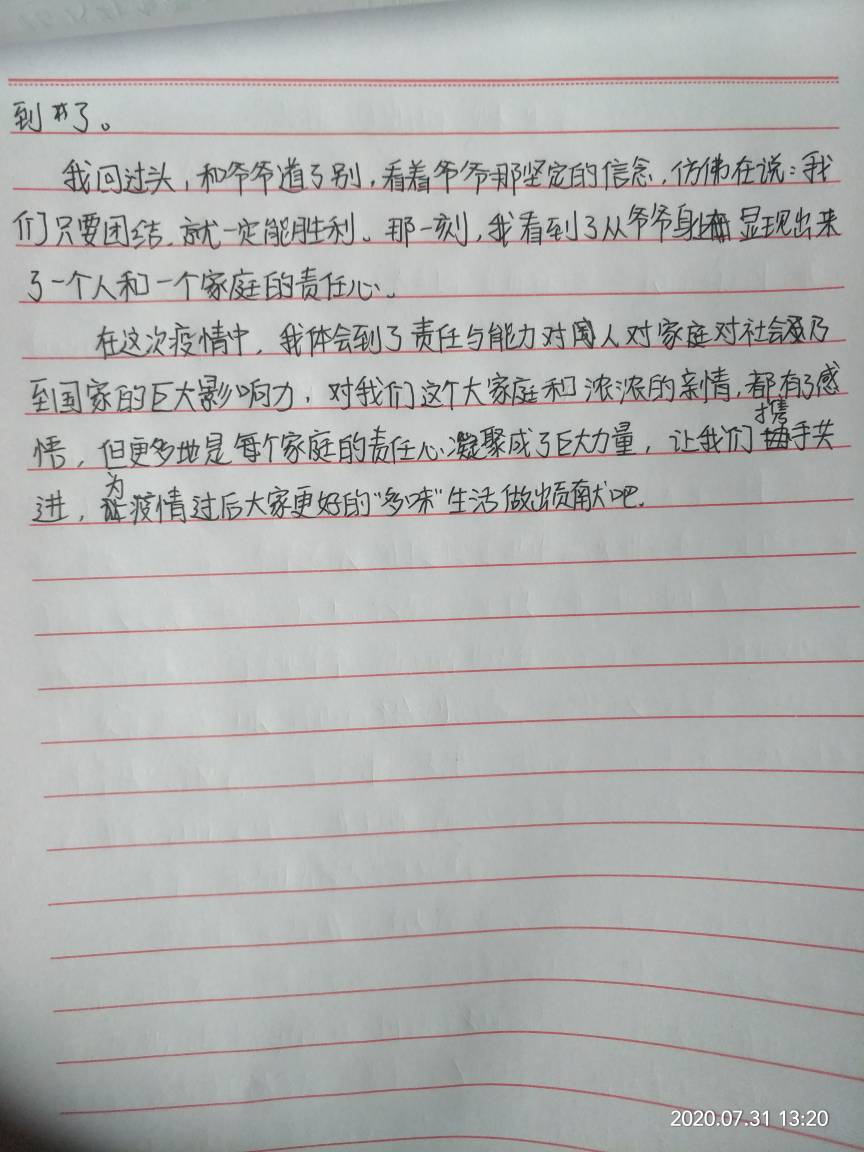 到来了。
我回过头，和爷爷道了别，看着爷爷那坚定的信念，仿佛在说：我
们只要团结，就一定能胜利。那一刻，我看到了从爷爷身上显现出来
了一个人和一个家庭的责任心。
在这次疫情中，我体会到了责任与能力对国人对家庭对社会乃
到国家的巨大影响力，对我们这个大家庭和浓浓的亲情，都有了感
悟，但更多地是每个家庭的责任心凝聚成了巨大力量，让我们携手共
进，为疫情过后大家更好的“多味”生活做出贡献吧.
2020.07.31 13:20